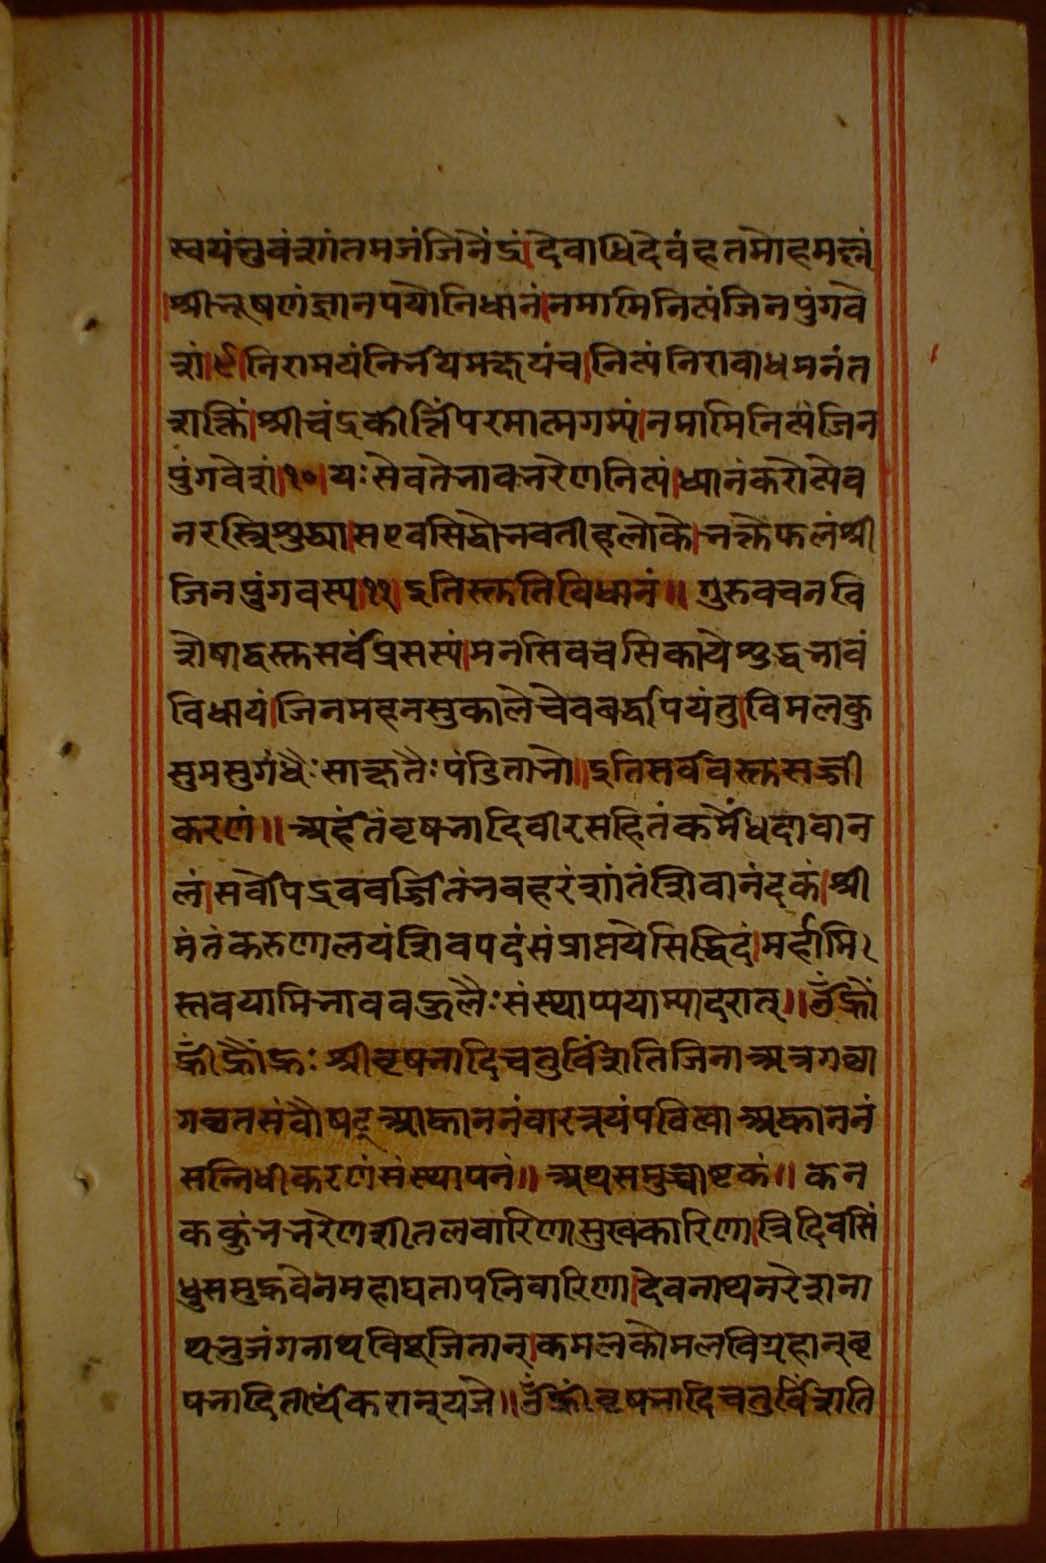 स्वयंभुवंशांतमजंजिनेंद्रं।देवाधिदेवंहतमोहमल्लं
श्रीभूषणंज्ञानपयोनिधानं।नमामिनित्यंजिनपुंगवे
शं।९।निरामयंनिर्भयमक्षयंच।नित्यंनिराबाधमनंत
शक्तिं।श्रीचंद्रकीर्त्तिंपरमात्मगम्यं।नमामिनित्यंजिन
पुंगवेशं।१०।यःसेवतेभावभरेणनित्यं।ध्यानंकरोत्येव
नरस्त्रिशुद्ध्या।सएवसिद्धोभवतीहलोके।भक्तेफलंश्री
जिनपुंगवस्य।११।इतिस्तुतिविधानं॥गुरुवचनवि
शेषाद्वस्तुसर्वंप्रसस्यं।मनसिवचसिकायेशुद्धभावं
विधायं।जिनमहनसुकालेचैववर्द्धापयंतु।विमलकु
सुमसुगंधैःसाक्षतैःपंडितानो॥इतिसर्ववस्तुसज्जी
करणं॥अर्हंतंवृषभादिवीरसहितंकर्मेंधदावान
लं।सर्वोपद्रववर्ज्जितंभवहरंशांतंशिवानंदकं।श्री
मंतंकरुणालयंशिवपदंसंप्राप्तयेसिद्धिदं।मर्हामि
स्तवयामिभाववज्जलैःसंस्थाप्ययाम्यादरात्॥ॐह्रां
ह्रींह्रौंह्रःश्रीवृषभादिचतुर्विंशतिजिनाअत्रागच्छा
गच्छतसंवौषट्आह्वाननंवारत्रयंपवित्वाअह्वाननं
सन्निधीकरणंसंस्थापनं॥अथसमुच्चाष्टकं॥कन
ककुंभभरेणशीतलवारिणासुखकारिणा।त्रिदिवसिं
धुसमुद्भवेनमहाघतापनिवारिणा।देवनाथनरेशना
थभुजंगनाथविपूजितान्।कमलकोमलविग्रहान्वृ
षभादितीर्थंकरान्यजे॥ॐह्रींवृषभादिचतुर्विंशति